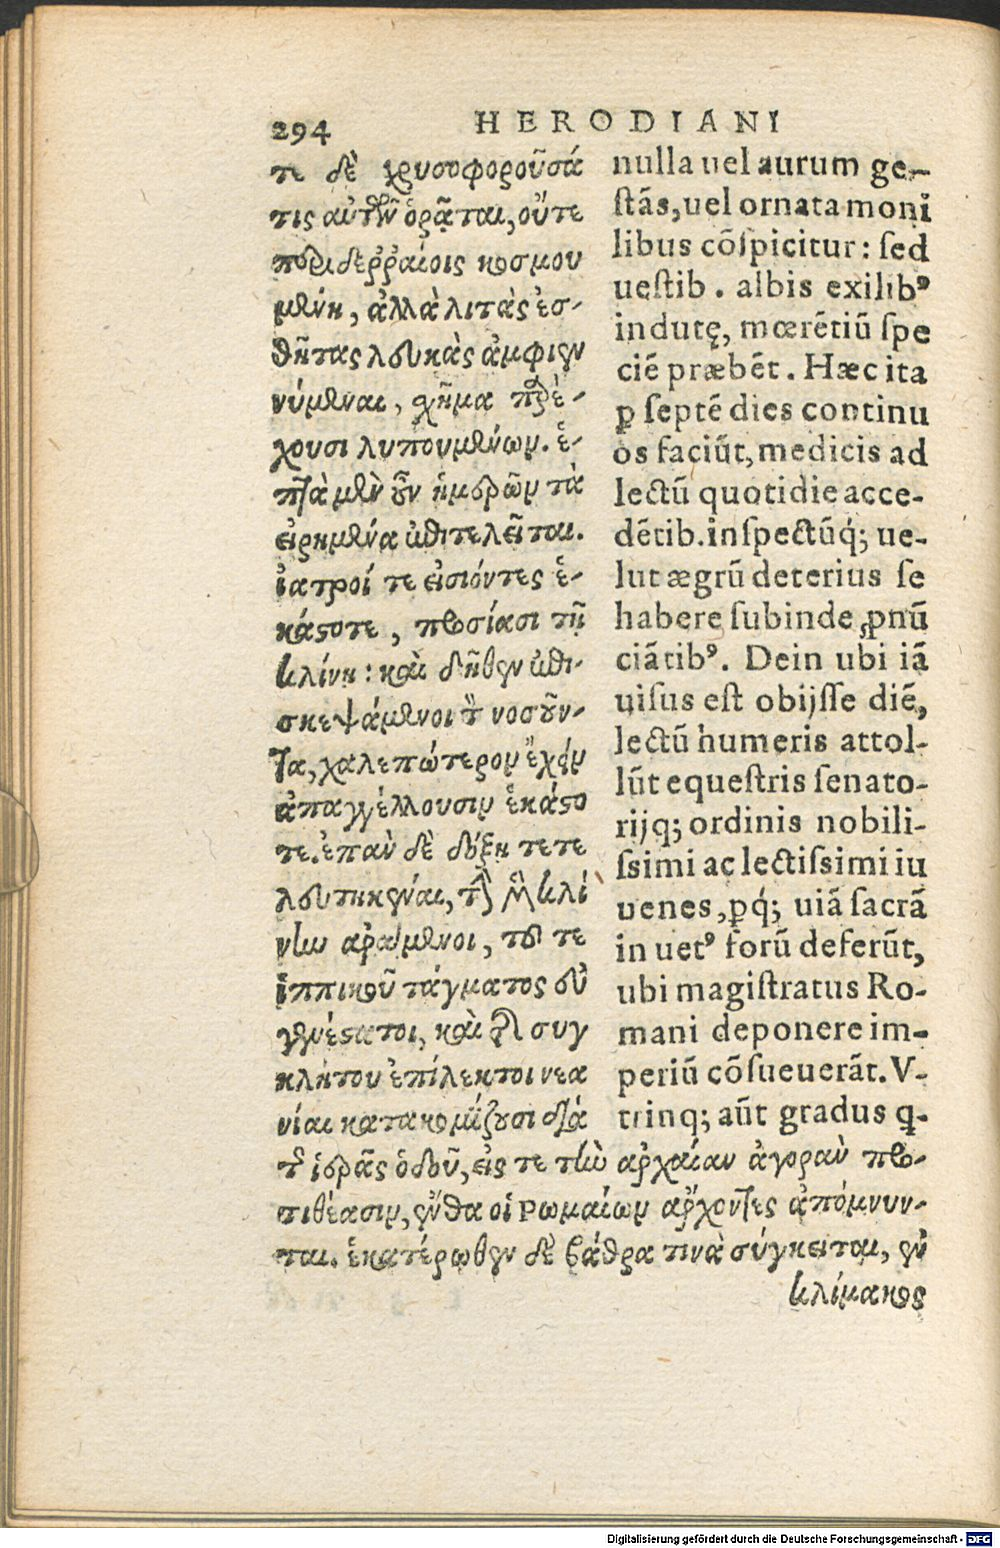 294 HERODIANI
τε δὲ χρυσοφοροῦσά
τις αὐτῶν ὁρᾶται, οὔτε
περιδεῤῥαίοις κοσμου
μένη, ἀλλὰ λιτὰς ἐσ-
θῆτας λευκὰς ἀμφιεν
νύμεναι, χῆμα παρέ-
χουσι λυπουμένων. ἑ-
πτὰ μὲν οὖν ἡμερῶν τὰ
εἰρημένα ἐπιτελεῖται.
ἰατροί τε εἰσιόντες ἑ-
κάστοτε, προσίασι τῇ
κλίνῃ: καὶ δῆθεν ἐπι-
σκεψάμενοι τὸν νοσοῦν-
τα, χαλεπώτερον ἔχειν
ἀπαγγέλλουσιν ἑκάστο
τε. ἐπὰν δὲ δόξῃ τετε
λευτηκέναι, τὴν μὲν κλί
νην ἀράμενοι, τοῦ τε
ἱππικοῦ τάγματος εὐ
γενέστατοι, καὶ τῆς συγ
κλήτου ἐπίλεκτοι νεα
νίαι κατακομίζουσι διὰ
τῆς ἱερᾶς ὁδοῦ, εἴς τε τὴν ἀρχαίαν ἀγορὰν προ-
τιθέασιν, ἔνθα οἱ Ρωμαίων ἄρχοντες ἀπόμνυν-
ται. ἑκατέρωθεν δὲ βάθρα τινὰ σύγκειται, ἐν
κλίμακος
nulla uel aurum ge-
stãs, uel ornata moni
libus cõspicitur: sed
uestib. albis exilibꝰ
indutę, mœrẽtiũ spe
ciẽ præbẽt. Hæc ita
ꝑ septẽ dies continu
os faciũt, medicis ad
lectũ quotidie acce-
dẽtib. inspectũq́; ue-
lut ægrũ deterius se
habere subinde ꝓnũ
ciãtibꝰ. Dein ubi iã
uisus est obijsse diẽ,
lectũ humeris attol-
lũt equestris senato-
rijq; ordinis nobili-
ssimi ac lectissimi iu
uenes, ꝑq́; uiã sacrã
in uetꝰ forũ deferũt,
ubi magistratus Ro-
mani deponere im-
periũ cõsueuerãt. V-
trinq; aũt gradus q-